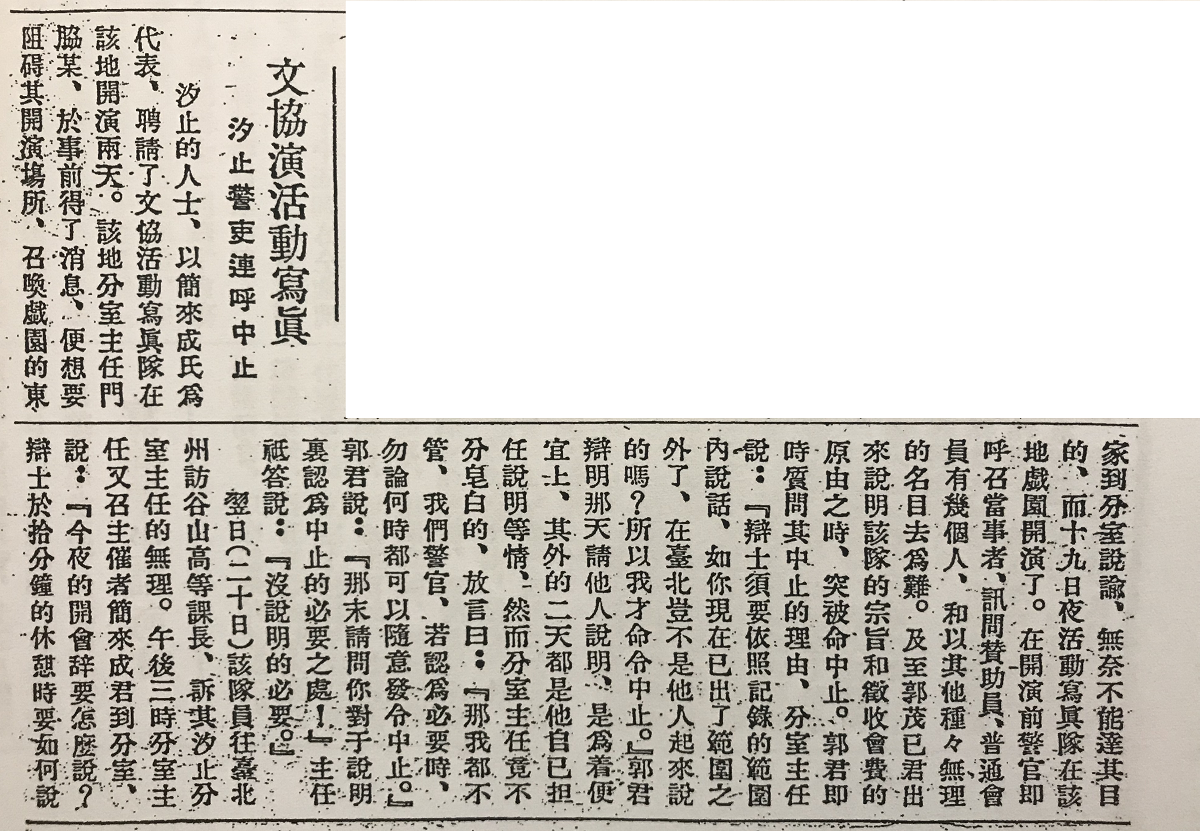 文協演活動寫眞
汐止警吏連呼中止
汐止的人士、以簡來成氏爲
代表、聘請了文協活動寫眞隊在
該地開演兩天。該地分室主任門
脇某、於事前得了消息、便想要
阻碍其開演場所、召喚戲園的東
家到分室說諭、無奈不能達其目
的、而十九日夜活動寫眞隊在該
地戲園開演了。在開演前警官即
呼召當事者、訊問贊助員、普通會
員有幾個人、和以其他種々無理
的名目去爲難。及至郭茂已君出
來說明該隊的宗旨和徵收會費的
原由之時、突被命中止。郭君即
時質問其中止的理由、分室主任
說：『辯士須要依照記錄的範圍
內說話、如你現在已出了範圍之
外了、在臺北豈不是他人起來說
的嗎？所以我才命令中止。』郭君
辯明那天請他人說明、是爲着便
宜上、其外的二天都是他自已担
任說明等情、然而分室主任竟不
分皂白的、放言曰：『那我都不
管、我們警官、若認爲必要時、
勿論何時都可以隨意發令中止。』
郭君說：『那末請問你對于說明
裏認爲中止的必要之處！』主任
祇答說：『沒說明的必要。』
翌日(二十日)該隊員往臺北
州訪谷山高等課長、訴其汐止分
室主任的無理。午後三時分室主
任又召主催者簡來成君到分室、
說：『今夜的開會辞要怎麼說？
辯士於拾分鐘的休憩時要如何說